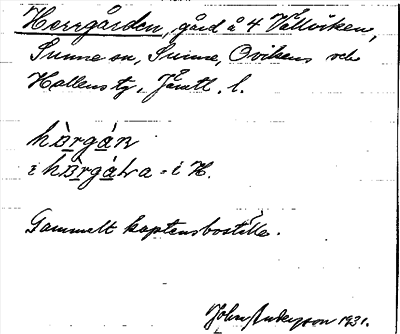 Herrgården, gård å 4 Vällviken,
Sunne sn, Sunne, Ovikens och
Hallens tg, Jämtl. l.
hä̀rgán
i hä̀rgáɫɹa = i H.
Gammelt kaptensboställe.
John Anderson 1931.